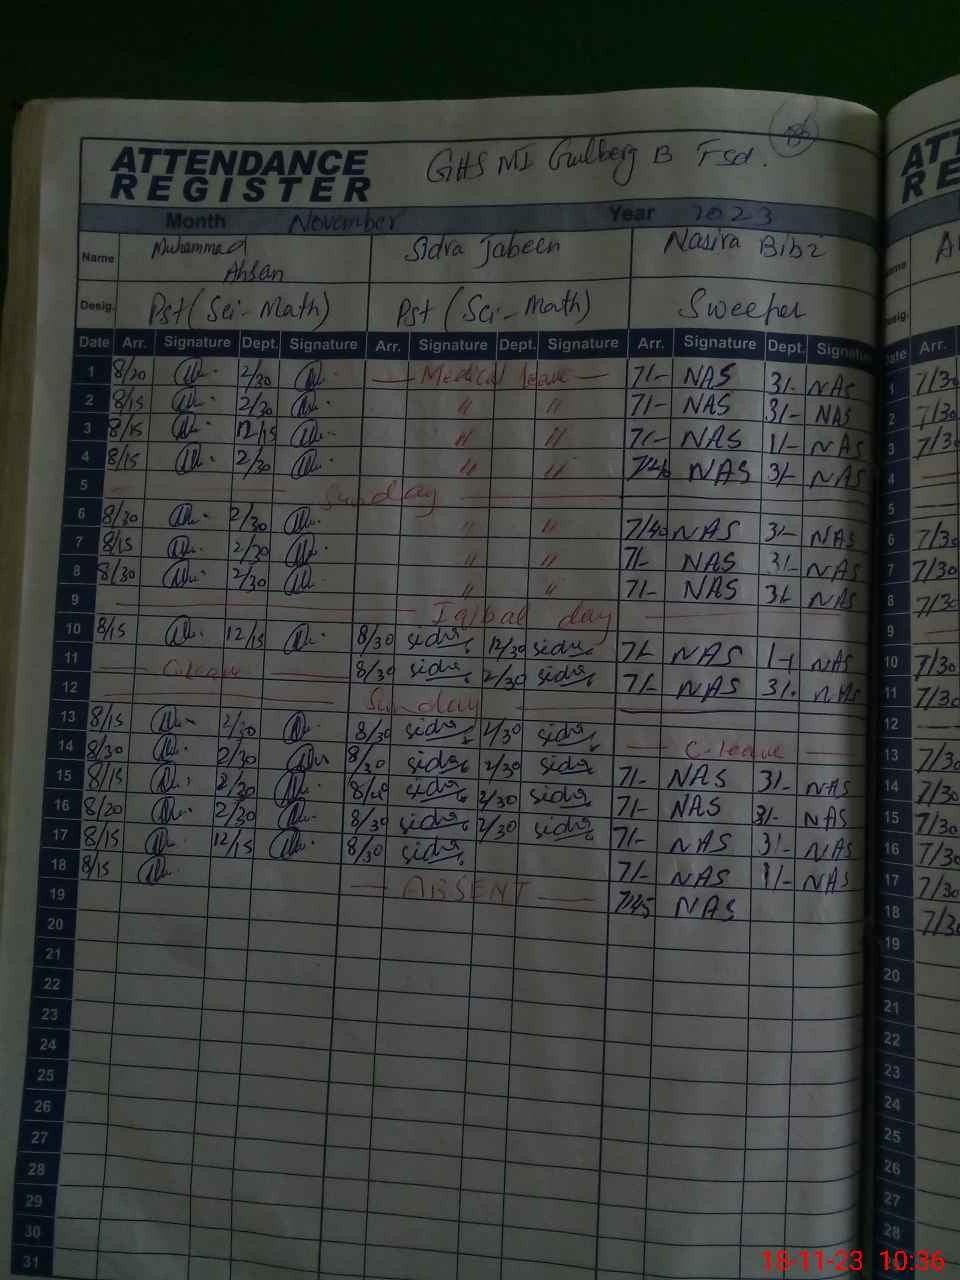 ATTENDANCE REGISTER
GHS MI Gulberg B Fsd.
Month November Year 2023
Name Muhammad Ahsan Sidra Jabeen Nasira Bibi
Desig. Pst (Sci-Math) Pst (Sci-Math) Sweeper
Date Arr. Signature Dept. Signature Arr. Signature Dept. Signature Arr. Signature Dept. Signature
1 8/20 2/30 Medical leave 7/- NAS 3/- NAS
2 8/15 2/30 " " 7/- NAS 3/- NAS
3 8/15 12/15 " " 7/- NAS 1/- NAS
4 8/15 2/30 " " NAS 3/- NAS
5 Sunday
6 8/30 2/30 " " 7/40 NAS 3/- NAS
7 8/15 2/30 " " 7/- NAS 3/- NAS
8 8/30 2/30 " " 7/- NAS 3/- NAS
9 Iqbal day
10 8/15 12/15 8/30 sidra 12/30 sidra 7/- NAS 1/- NAS
11 8/30 sidra 2/30 sidra 7/- NAS 3/- NAS
12 Sunday
13 8/15 2/30 8/30 sidra 2/30 sidra C-leave
14 8/30 2/30 8/30 sidra 2/30 sidra 7/- NAS 3/- NAS
15 8/15 2/30 sidra 2/30 sidra 7/- NAS 3/- NAS
16 8/20 2/30 8/30 sidra 2/30 sidra 7/- NAS 3/- NAS
17 8/15 12/15 8/30 sidra 7/- NAS 1/- NAS
18 8/15 ABSENT 7/45 NAS
19
20
21
22
23
24
25
26
27
28
29
30
31
Arr.
1 7/30
2 7/30
3 7/30
4
5
6 7/30
7 7/30
8 7/30
9
10 7/30
11 7/30
12
13 7/30
14 7/30
15 7/30
16 7/30
17 7/30
18 7/30
19
20
21
22
23
24
25
26
27
28
18-11-23 10:36